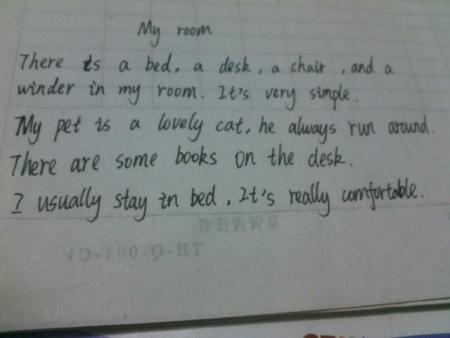 My room
There is a bed, a desk, a chair, and a
winder in my room. It's very simple.
My pet is a lovely cat, he always run around.
There are some books on the desk.
I usually stay in bed, It's really comfortable.
TH-Q-001-C1